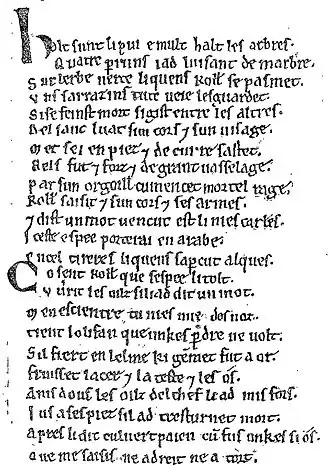 Halt sunt li pui e mult halt les arbres.
Quatre pruns i ad luisant de marbre.
Sur lerbe uerte li quens Roll̃ se pasmet.
Uns sarrazins tute ueie lesguardet.
Si se feinst mort si gist entre les altres.
Del sanc luat sun cors ⁊ sun uisage.
Met sei en piez ⁊ de curre sastet.
Bels fut ⁊ forz ⁊ de grant uasselage.
Par sun orgoill cumencet mortel rage.
Roll̃ saisit ⁊ sun cors ⁊ ses armes.
⁊ dist un mot uencut est li nies carles.
Iceste espee porterai en arabe.
En cel tirer li quens saprcut alques.
Co sent Roll̃ que sespee li tolt.
Uurit les oilz si li ad dit un mot.
Men escientre tu nies mie des noz.
Tient lolifan que unkes pdre ne uolt.
Sil fiert en lelme ki gemet fut a or.
Fruisset lacer ⁊ la teste ⁊ les os.
Amsdous les oilz del chef li ad mis fors.
Ius a ses piez si lad tresturnet mort.
Apres li dit culuert paien cū fus unkes si os.
Que me saisis ne a dreit ne a tort.